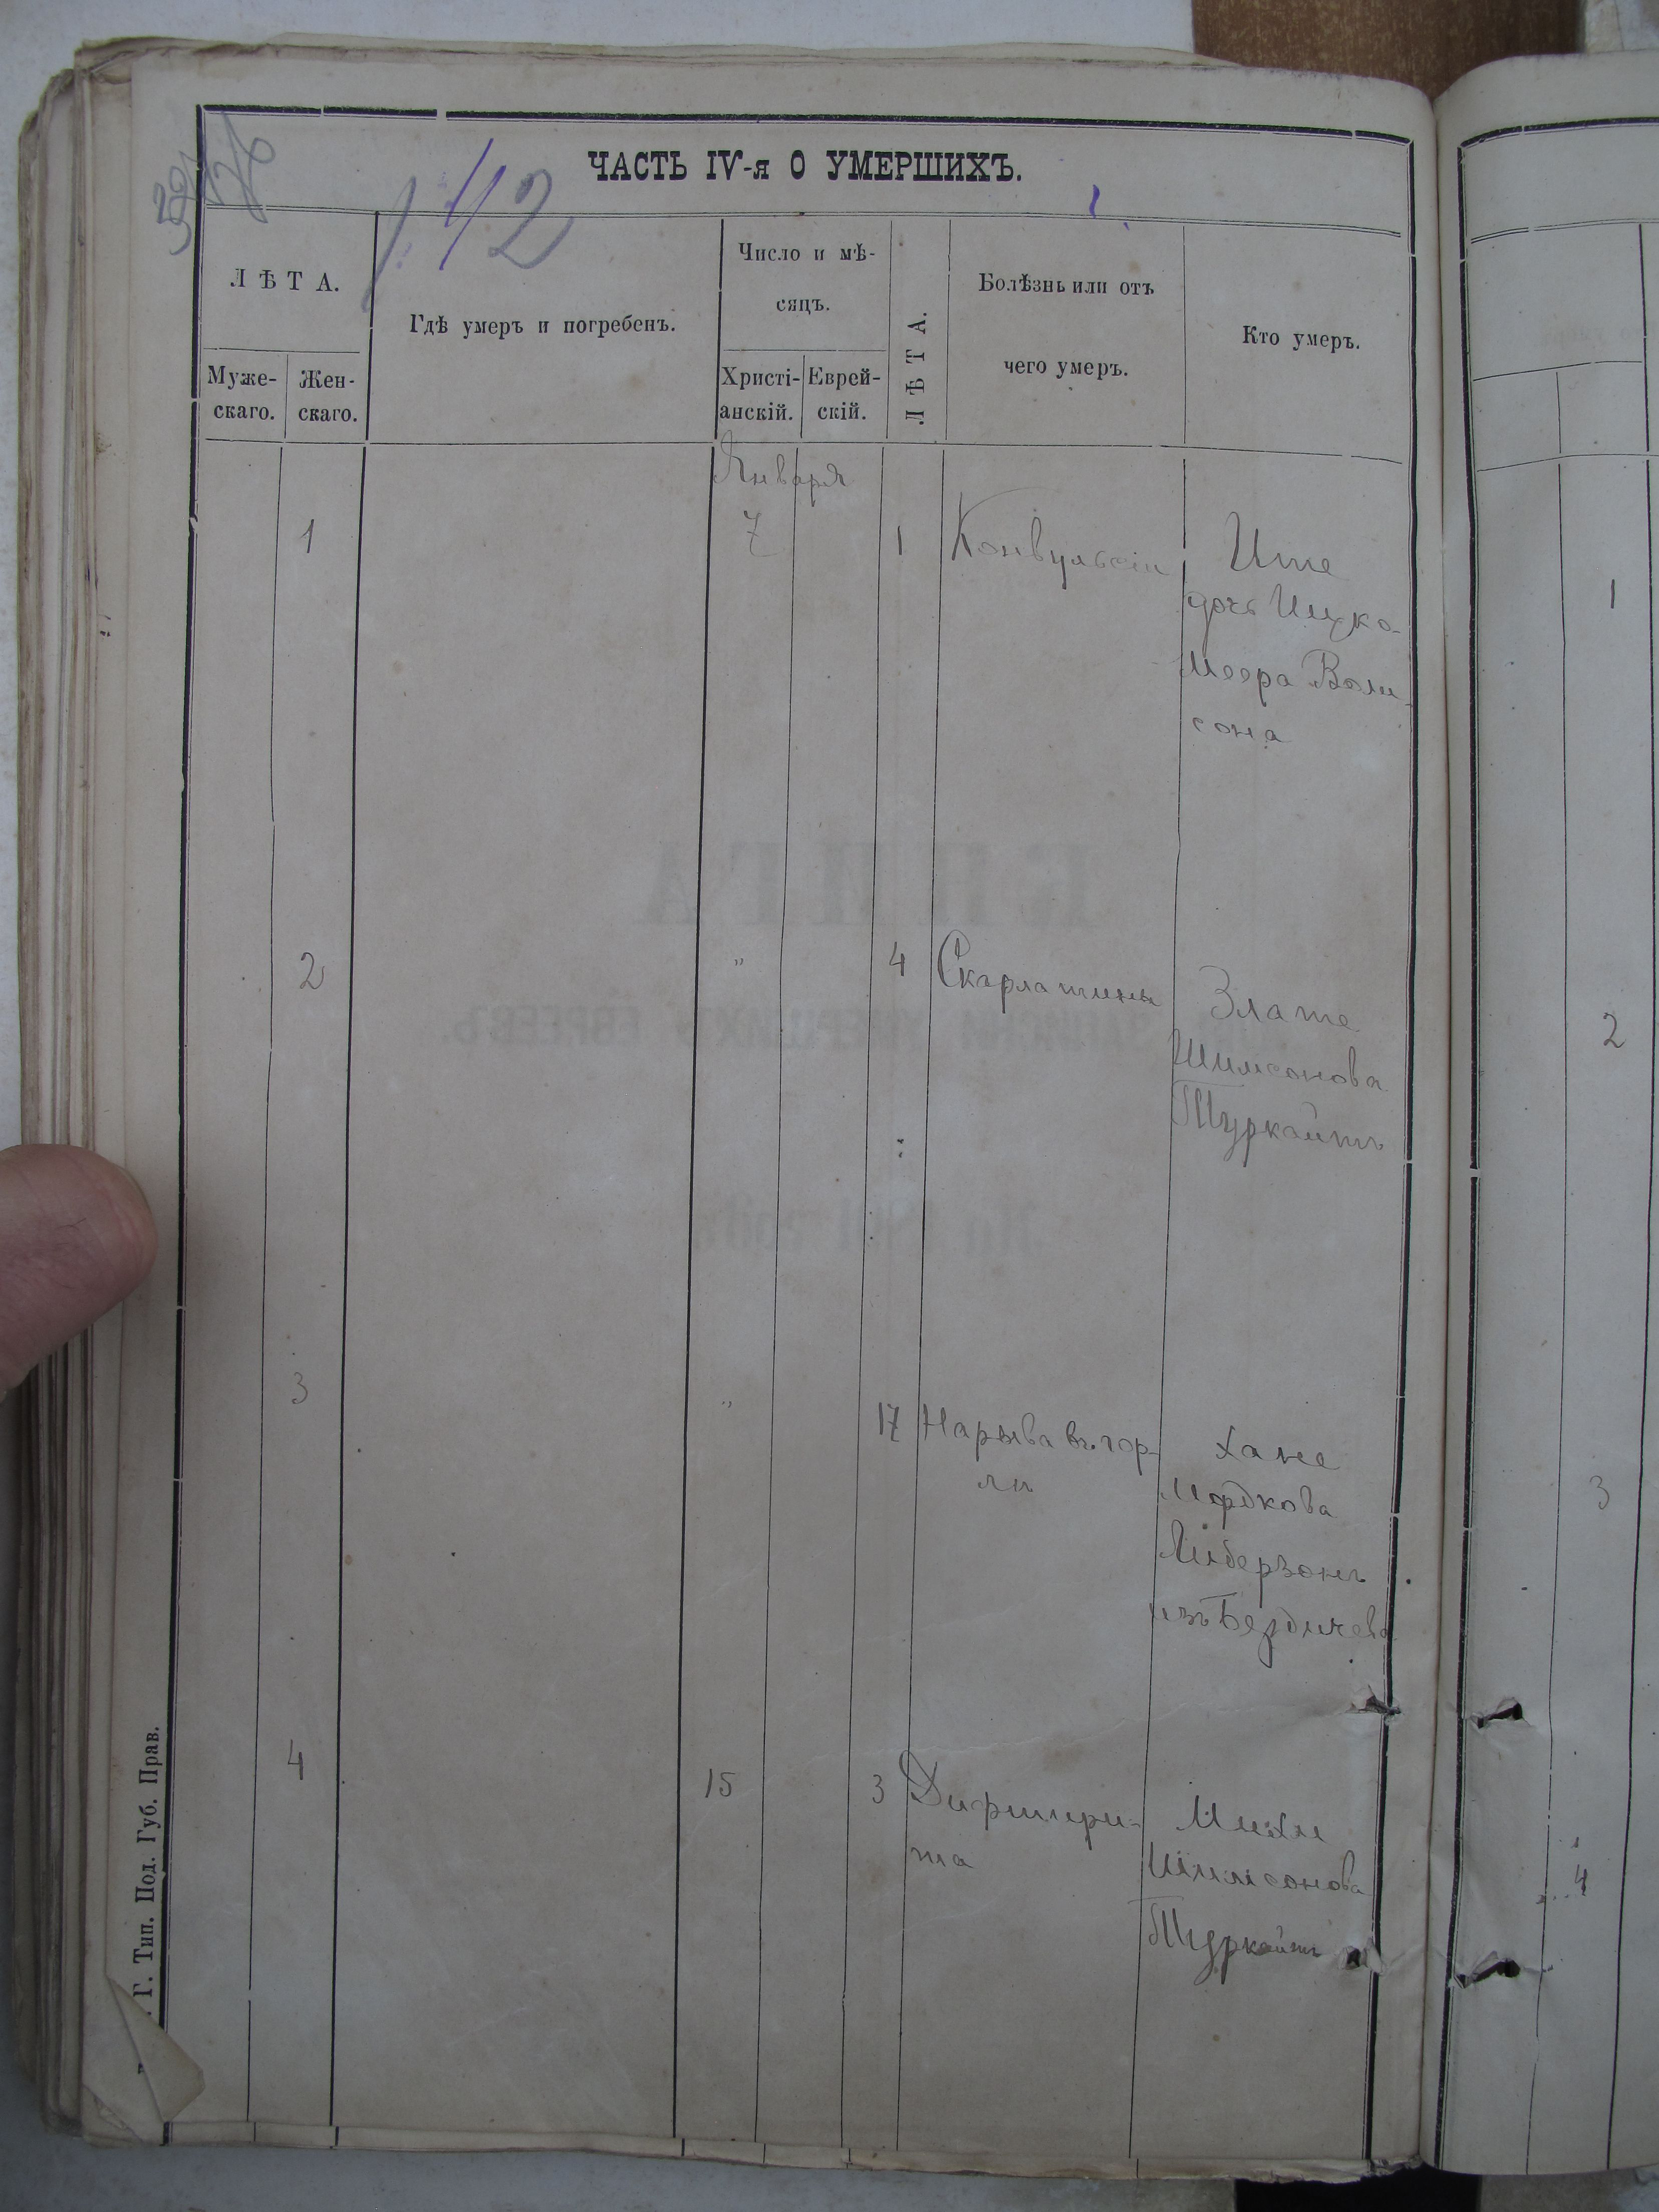 ЧАСТЬ IV-я О УМЕРШИХЪ.
142
ЛѢТА.
Муже-
скаго.
Жен-
скаго.
Гдѣ умеръ и погребенъ.
Число и мѣ-
сяцъ.
Христі-
анскій.
Еврей-
скій.
ЛѢТА.
Болѣзнь или отъ
чего умеръ.
Кто умеръ.
Января
1
7
1
Конвульсіи
Ите
дочь Ицко-
Меера
сона
1
2
"
4
Скарлатины
Злате
Шимсонова
Шуркайтъ
2
3
"
17
Нарыва въ гор-
лѣ
Хане
Мордкова
Либерзонъ
изъ Бердичева
3
4
15
3
Дифтери-
та
Шимсонова
Шуркайтъ
4
Г. Тип. Под. Губ. Прав.
КНИГА
ЗАПИСКИ УМЕРШИХЪ ЕВРЕЕВЪ.